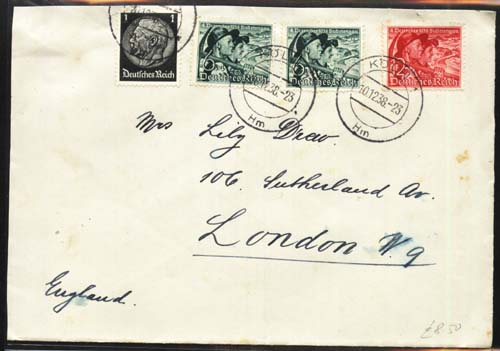 1 1
Deutsches Reich
4.Dezember 1938 Sudetengau
Deutsches Reich
4.Dezember 1938 Sudetengau
Deutsches Reich
4.Dezember 1938 Sudetengau
Deutsches Reich
KÖLN
10.12.38.-23
Hm
KÖLN
10.12.38.-23
Hm
Mrs Lily Drew.
106. Sutherland Av.
London W.9
England.
£8.50